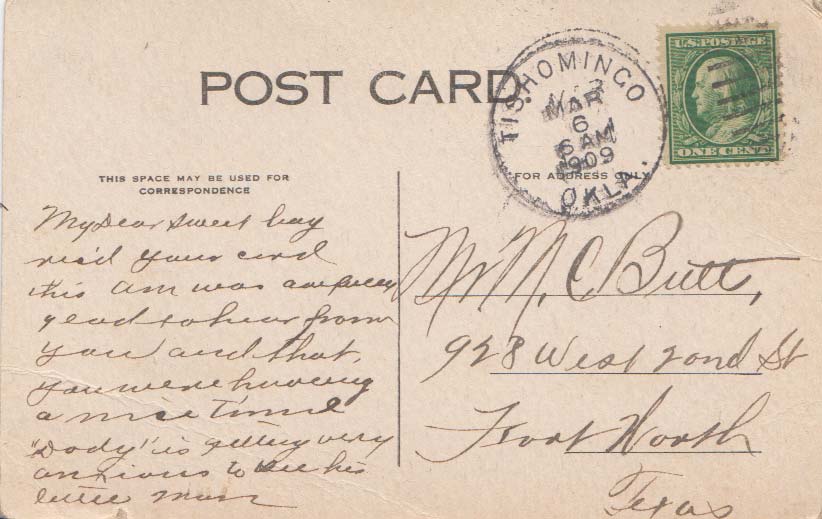 POST CARD.
TISHOMINGO
MAR
6
6 AM
1909
OKLA.
U.S. POSTAGE
ONE CENT
THIS SPACE MAY BE USED FOR
CORRESPONDENCE
FOR ADDRESS ONLY
My Dear Sweet boy
rec'd your card
this am was
glad to hear from
you and that
you were having
a nice time
"Dody" is getting very
anxious to see his
little man
Mr M, C Butt,
928 West 2ond St
Fort Worth
Texas